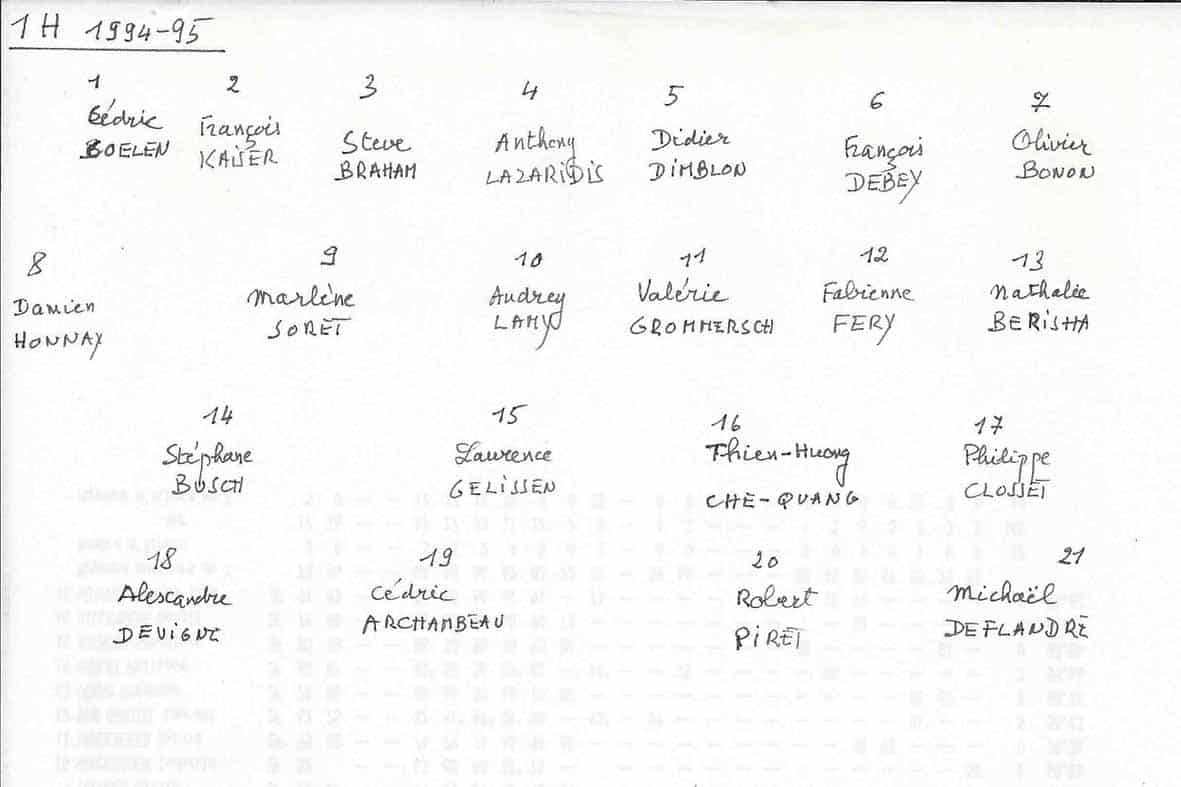 1H 1994-95
1 2 3 4 5 6 7
Cédric François Steve Anthony Didier François Olivier
BOELEN KAISER BRAHAM LAZARIDIS DIMBLON DEBEY BONON
8 9 10 11 12 13
Damien Marlène Audrey Valérie Fabienne Nathalie
HONNAY SORET LAMY GROMMERSCH FERY BERISHA
14 15 16 17
Stéphane Laurence Thien-Huong Philippe
BUSCH GELISSEN CHE-QUANG CLOSSET
18 19 20 21
Alexandre Cédric Robert Michaël
DEVIGNE ARCHAMBEAU PIRET DEFLANDRE